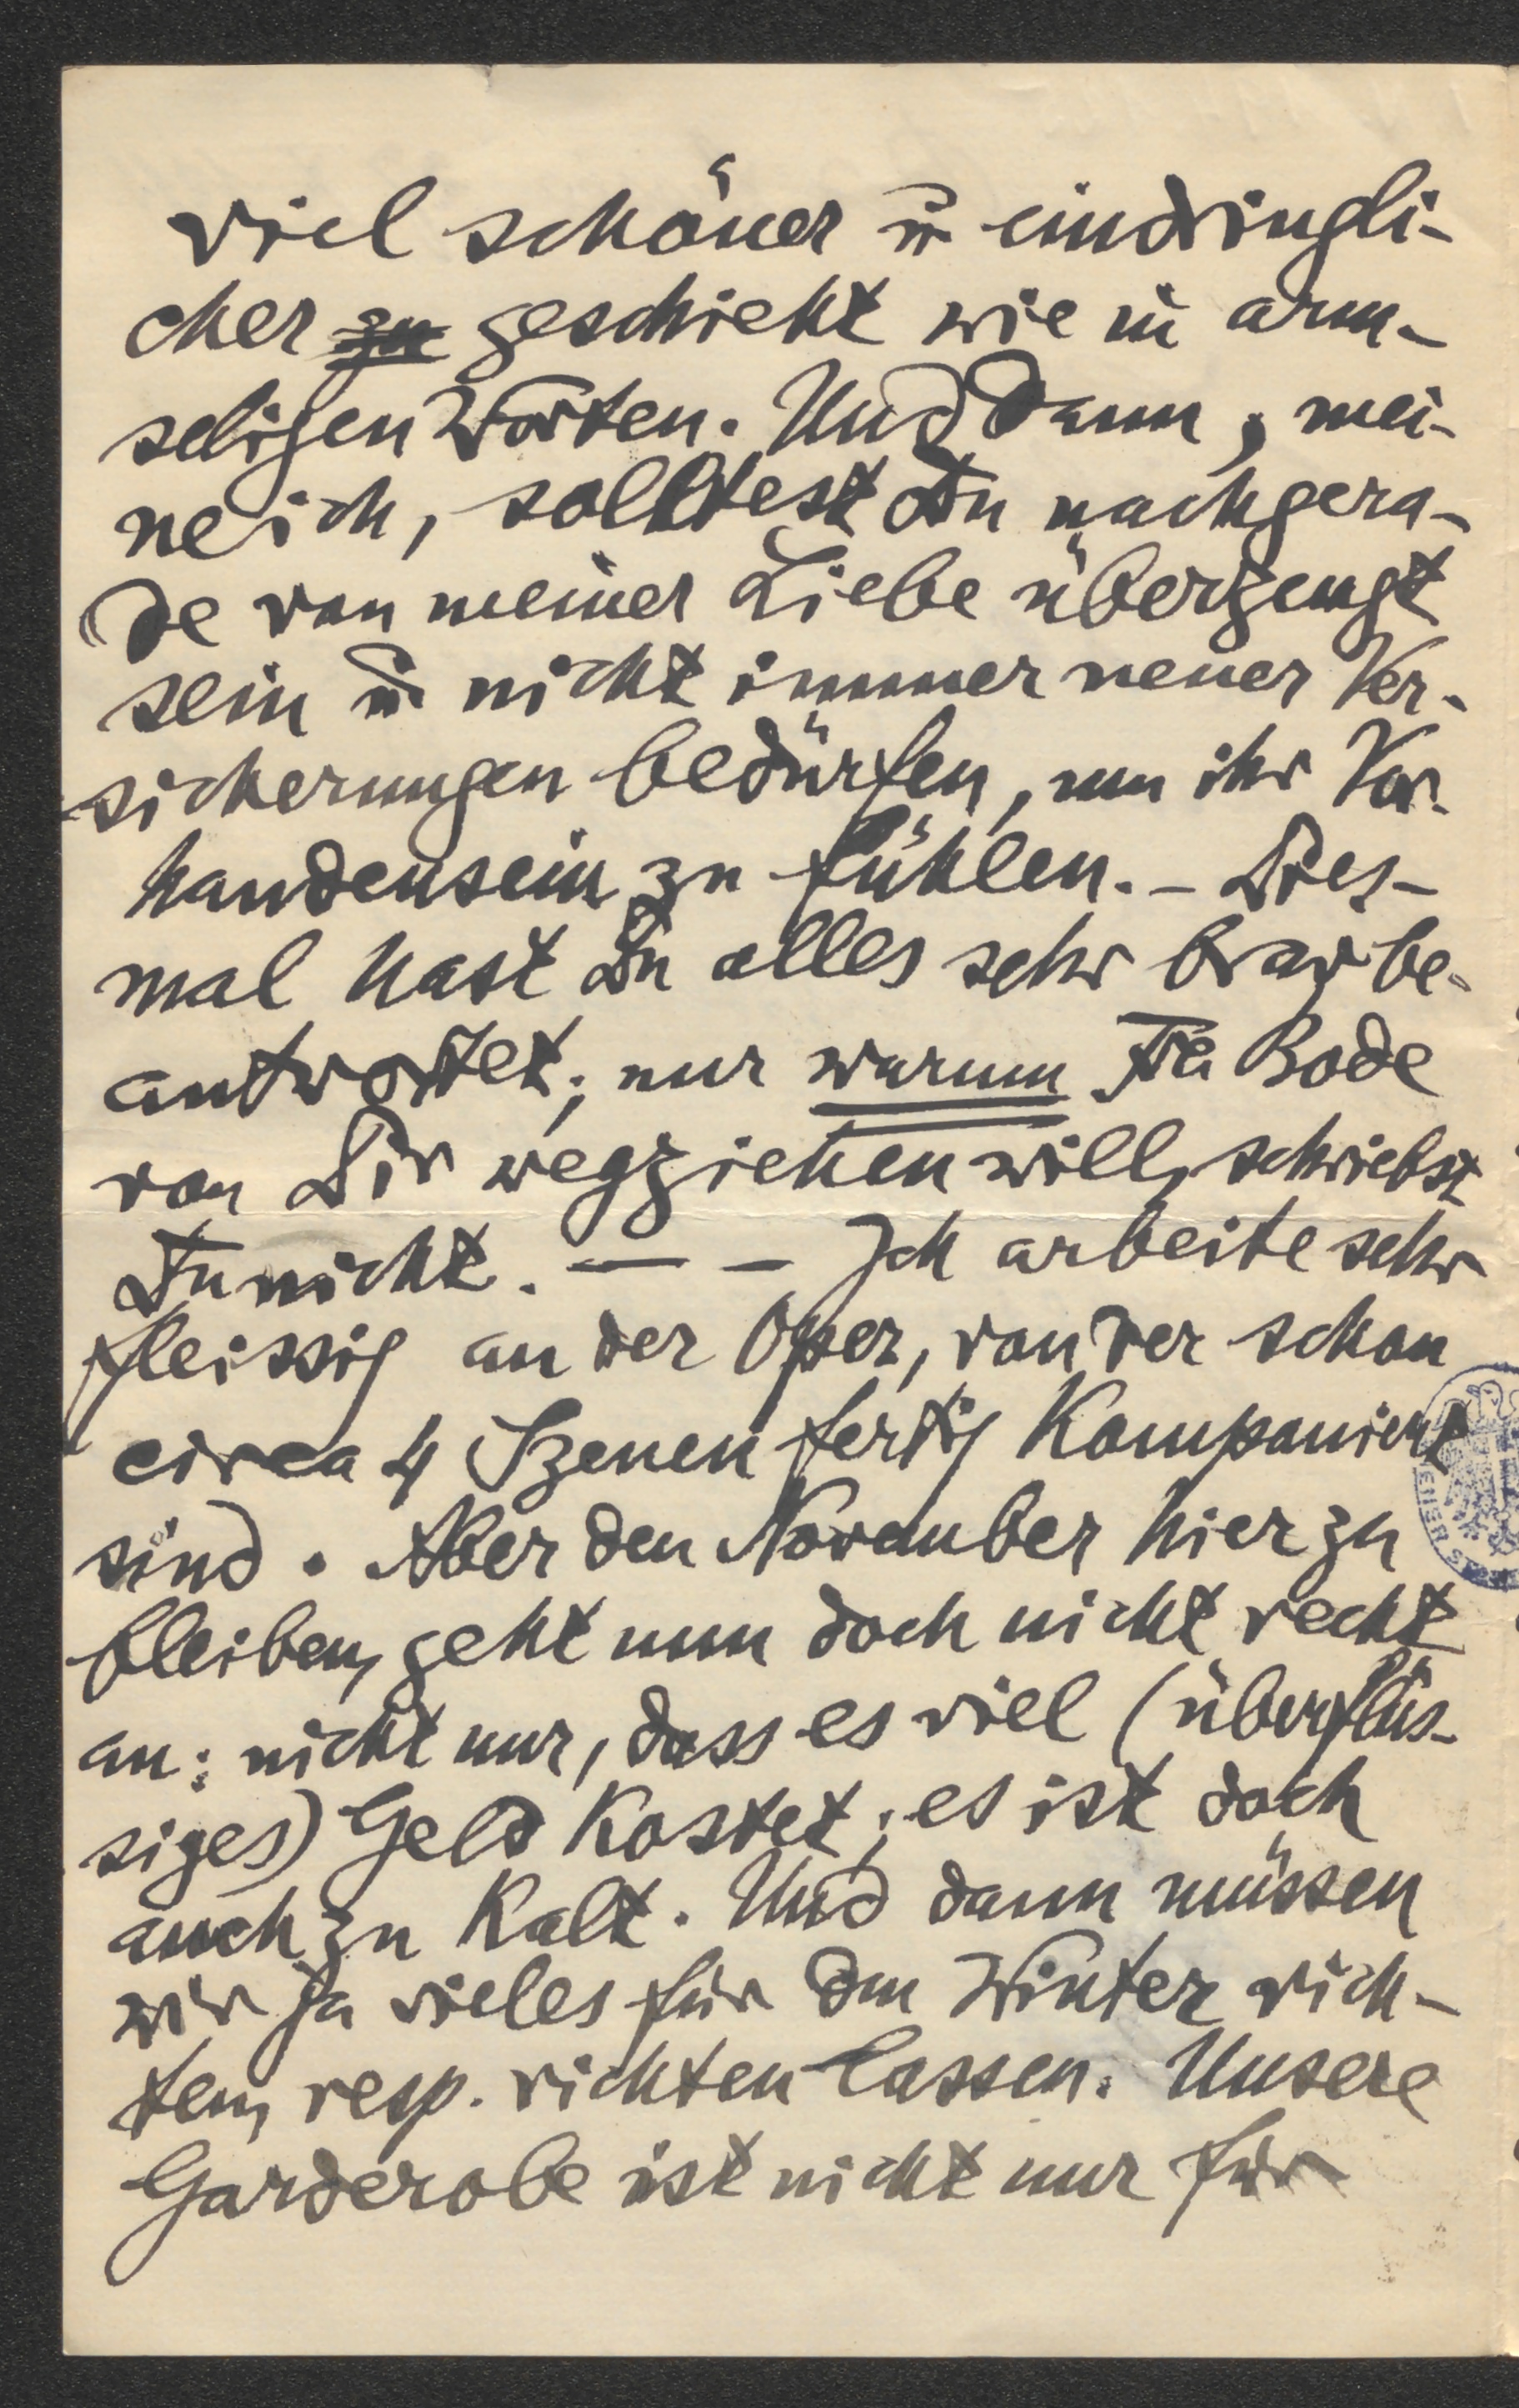 viel schöner u̅ eindringli-
cher ~~zu~~ geschieht wie in arm-
seligen Worten. Und dann, mei-
ne ich, solltest Du nachgera-
de von meiner Liebe überzeugt
sein u̅ nicht immer neuer Ver-
sicherungen bedürfen, um ihr Vor-
handensein zu fühlen. – Dies-
mal hast Du alles sehr brav be-
antwortet; nur warum Bode
von Dir wegziehen will, schriebst
Du nicht. — – Ich arbeite sehr
fleissig an der Oper, von der schon
circa 4 Szenen fertig komponiert
sind. Aber den November hier zu
bleiben, geht nun doch nicht recht
an: nicht nur, dass es viel (überflüs-
siges) Geld kostet; es ist doch
auch zu kalt. Und dann müssen
wir ja vieles für den Winter rich-
ten, resp. richten lassen. Unsere
Garderobe ist nicht nur für